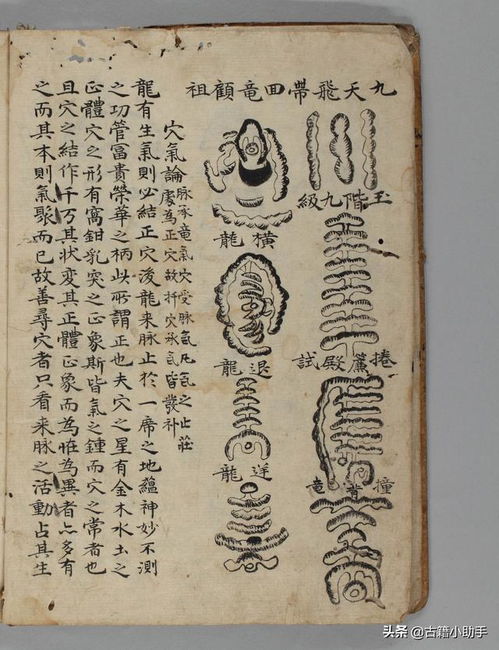 九天飛帶
回竜顧祖
玉階九級
橫龍
捲簾殿試
退龍
撞背竜
逆龍
穴氣論
脉承竜氣穴受脉氣凡氣之止
處為正穴故扦穴承氣皆發
龍有生氣則必結正穴後龍来脉止於一席之地蘊神妙不測
之功管富貴榮華之柄此所謂正也夫穴之星有金木水土之
正體穴之形有窩鉗乳突之正象斯皆氣之鍾而穴之常者也
且穴之結作千万其状変其正體正象而為恠為異者亦多有
之而其本則氣聚而已故善尋穴者只看来脉之活動占其生
头条 @古籍小助手